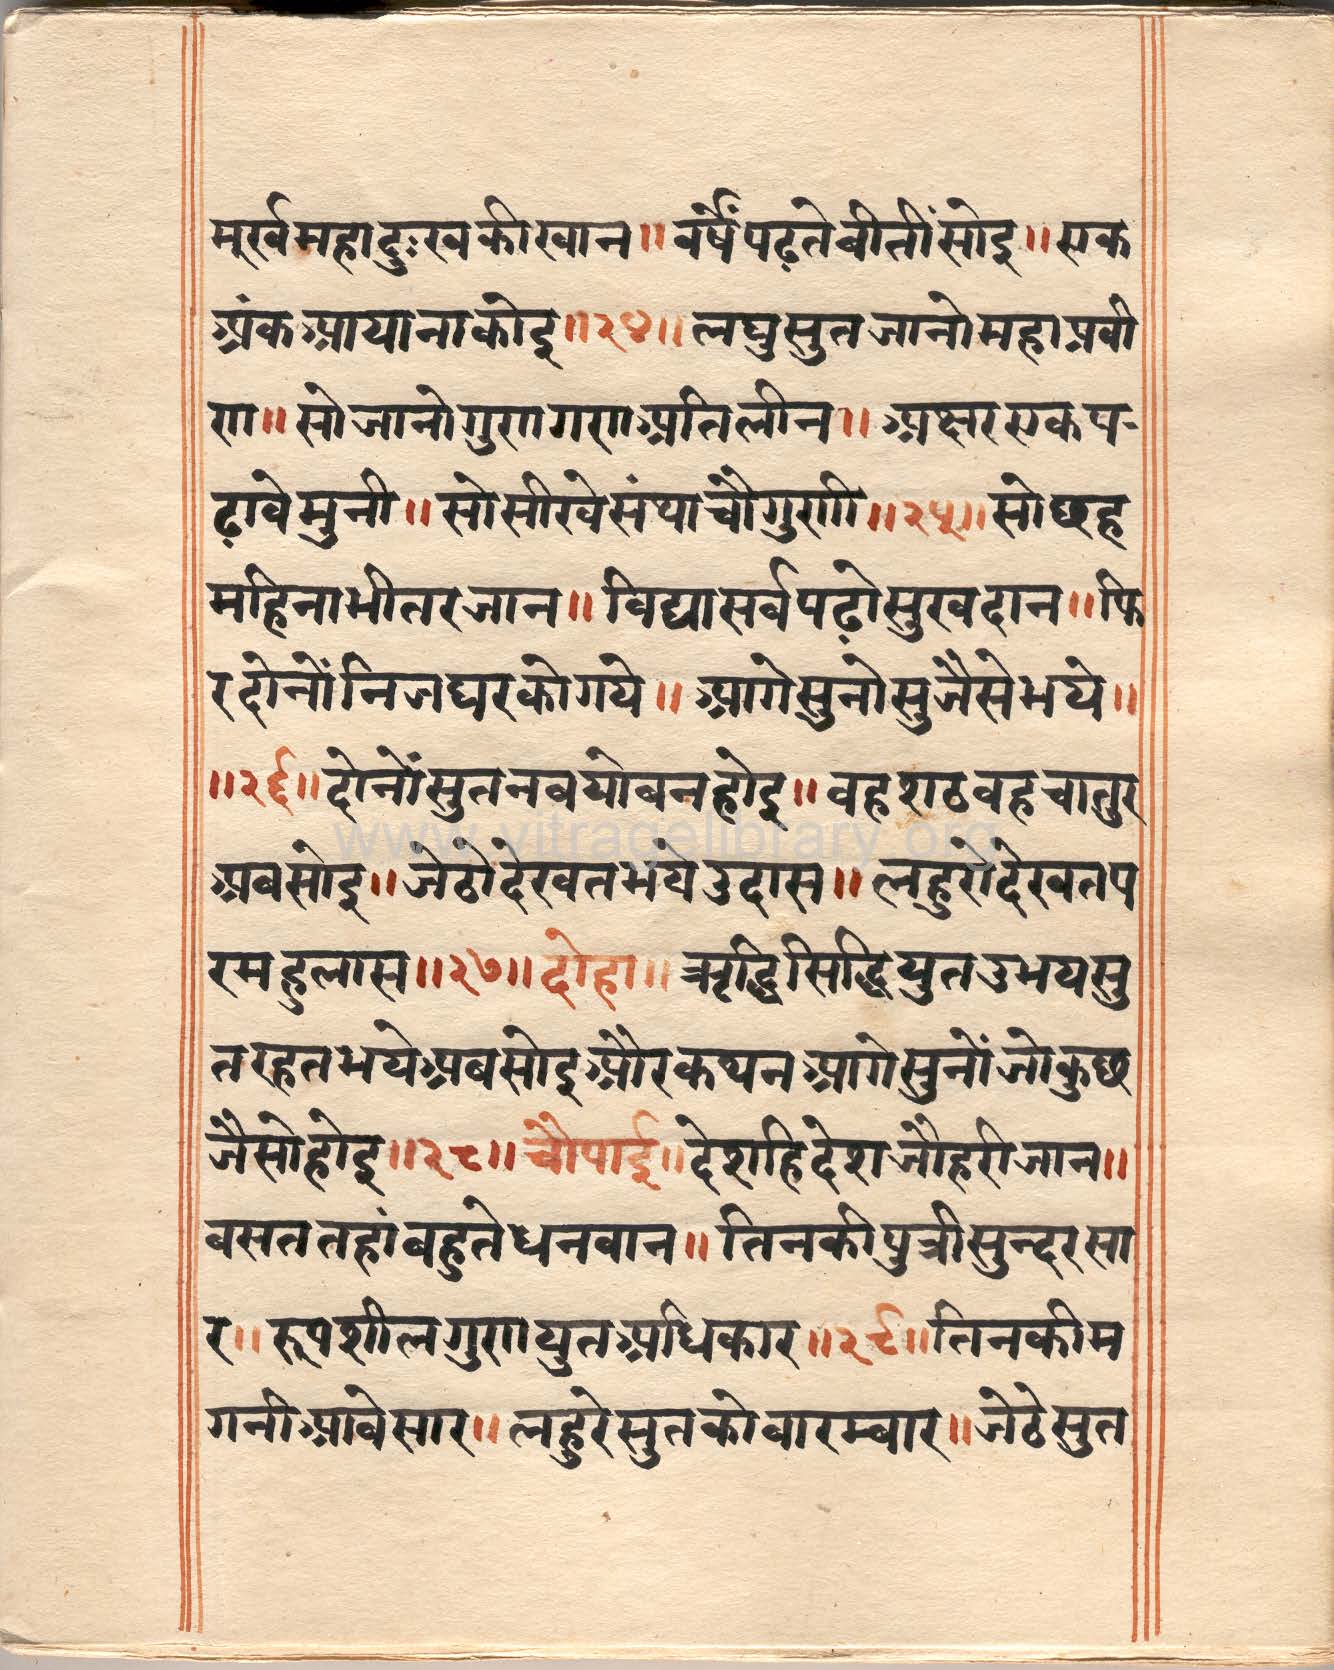 मूर्खमहादुःखकीखान॥ वर्षेंपढ़तेबीतींसोइ॥ एक
अंकआयानाकोइ॥२४॥ लघुसुतजानोमहाप्रवी
ण॥ सोजानोगुणगणअतिलीन॥ अक्षरएकप-
ढ़ावेमुनी॥ सोसीखेसंथाचौगुणी॥२५॥ सोछह
महिनाभीतरजान॥ विद्यासर्वपढ़ोसुखदान॥ फि
रदोनोंनिजघरकोगये॥ आगेसुनोसुजैसेभये॥
॥२६॥ दोनोंसुतनवयोवनहोइ॥ वहशठवहचातुर
अवसोइ॥ जेठोदेखतभयेउदास॥ लहुरोदेखतप
रमहुलास॥२७॥ दोहा॥ ऋद्धिसिद्धियुतउभयसु
तरहतभयेअवसोइऔरकथनआगेसुनोंजोकुछ
जैसोहोइ॥२८॥ चौपाई॥ देशहिदेशजौहरीजान॥
वसततहांबहुतेधनवान॥ तिनकीपुत्रीसुन्दरसा
र॥ रूपशीलगुणयुतअधिकार॥२९॥ तिनकीम
गनीआवेसार॥ लहुरेसुतकोवारम्वार॥ जेठेसुत
www.vitragelibrary.org